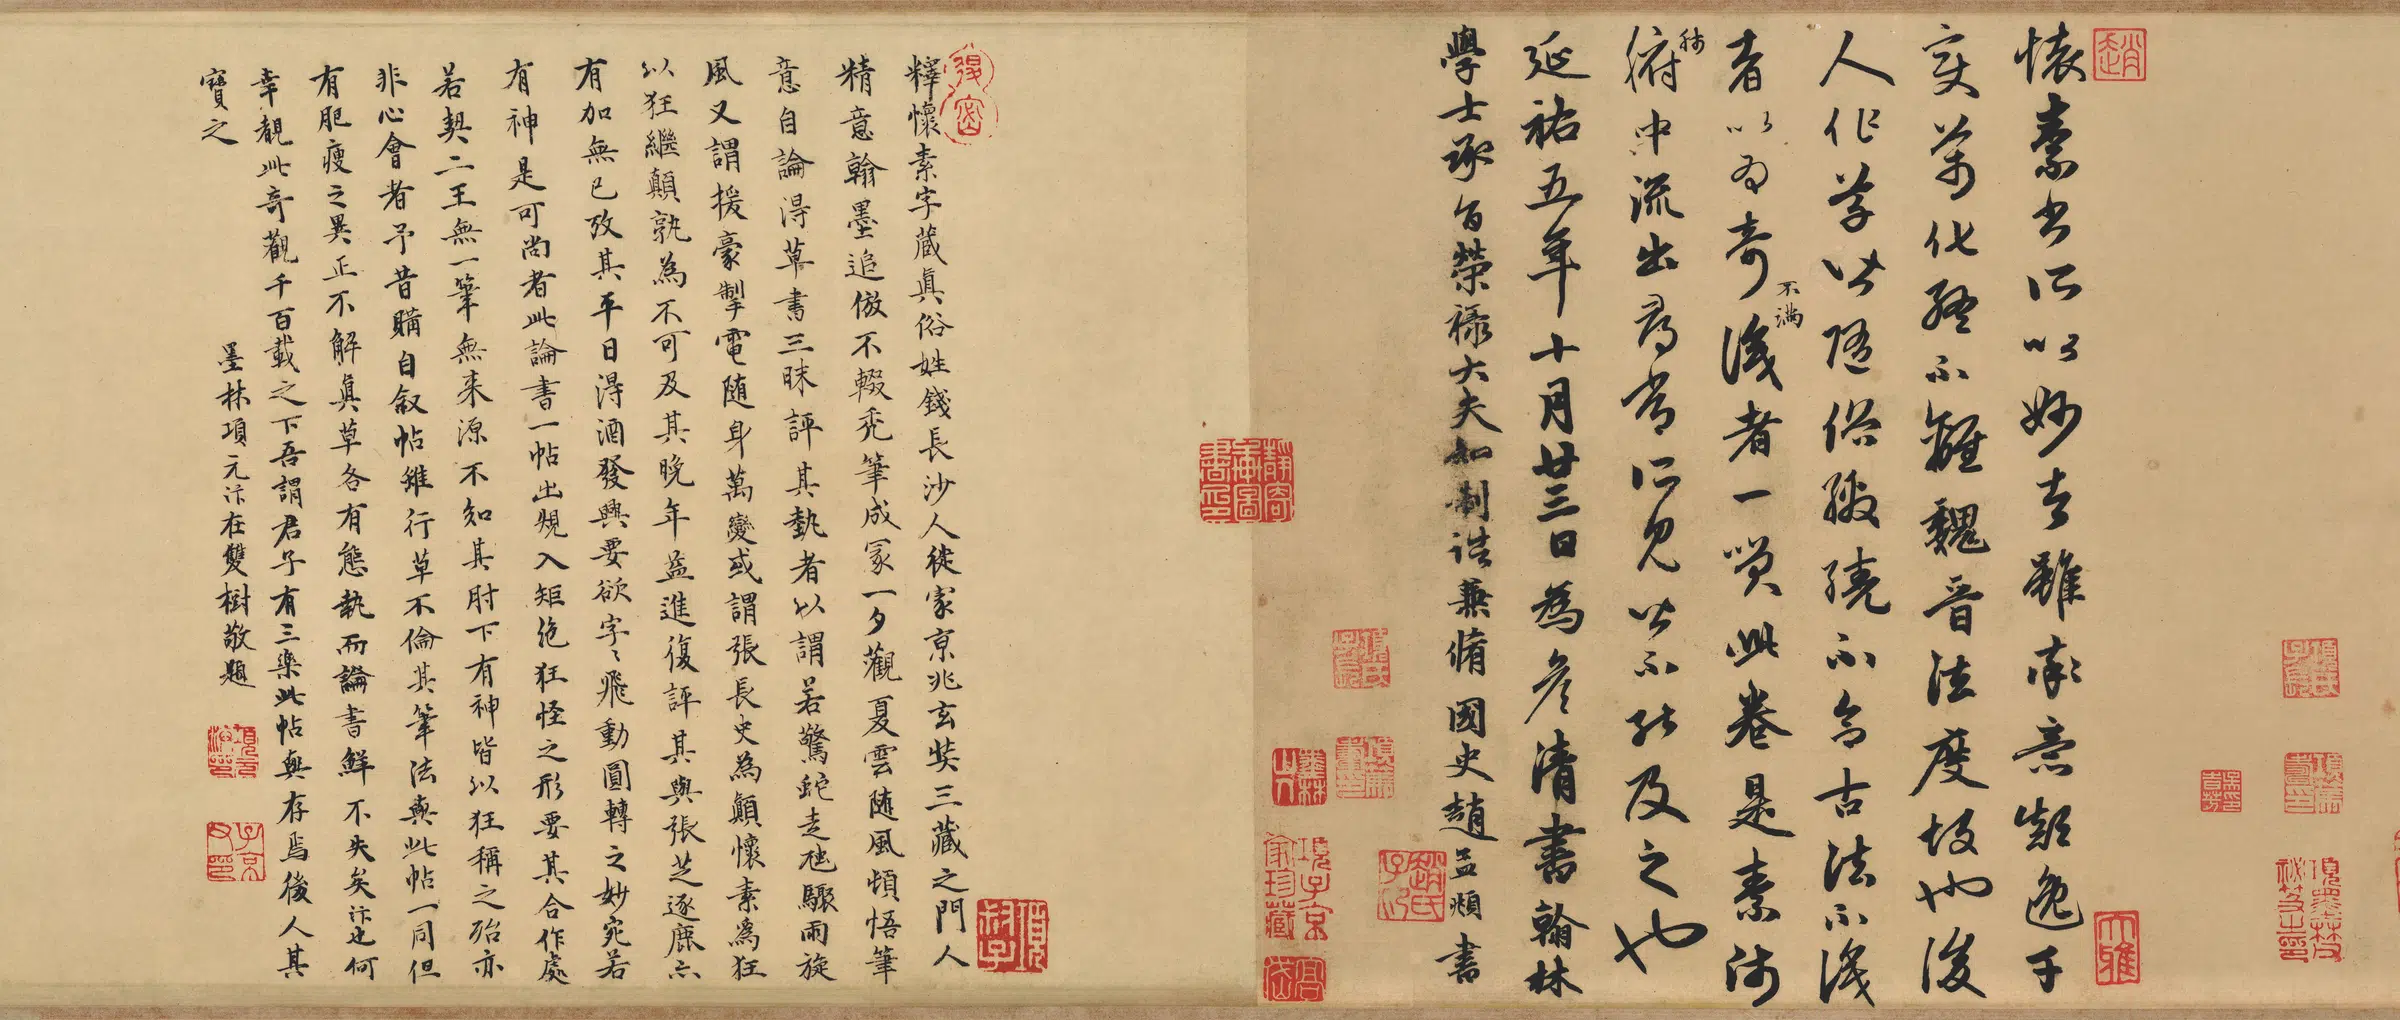 懷素書所以妙者雖率意顛逸千
變萬化終不離魏晉法度故也後
人作草皆隨俗繳繞不合古法不識
者以為奇不滿識者一笑此卷是素師
肺腑中流出尋常所見皆不能及之也
延祐五年十月廿三日為彥清書翰林
學士承旨榮祿大夫知制誥兼脩國史趙孟頫書
釋懷素字藏真俗姓錢長沙人徙家京兆玄奘三藏之門人
精意翰墨追倣不輟禿筆成冢一夕觀夏雲隨風頓悟筆
意自論得草書三昧評其執者以謂若驚蛇走虺驟雨旋
風又謂援豪掣電隨身萬變或謂張長史為顛懷素為狂
以狂繼顛孰為不可及其晚年益進復評其與張芝逐鹿亦
有加無已攷其平日得酒發興要欲字〻飛動圓轉之妙宛若
有神是可尚者此論書一帖出規入矩絕狂怪之形要其合作處
若契二王無一筆無來源不知其肘下有神皆以狂稱之殆亦
非心會者予昔購自敘帖雖行草不倫其筆法與此帖一同但
有肥瘦之異正不解真草各有態執而論書鮮不失矣汴也何
幸覩此奇觀千百載之下吾謂君子有三樂此帖與存焉後人其
寶之
墨林項元汴在雙樹敬題